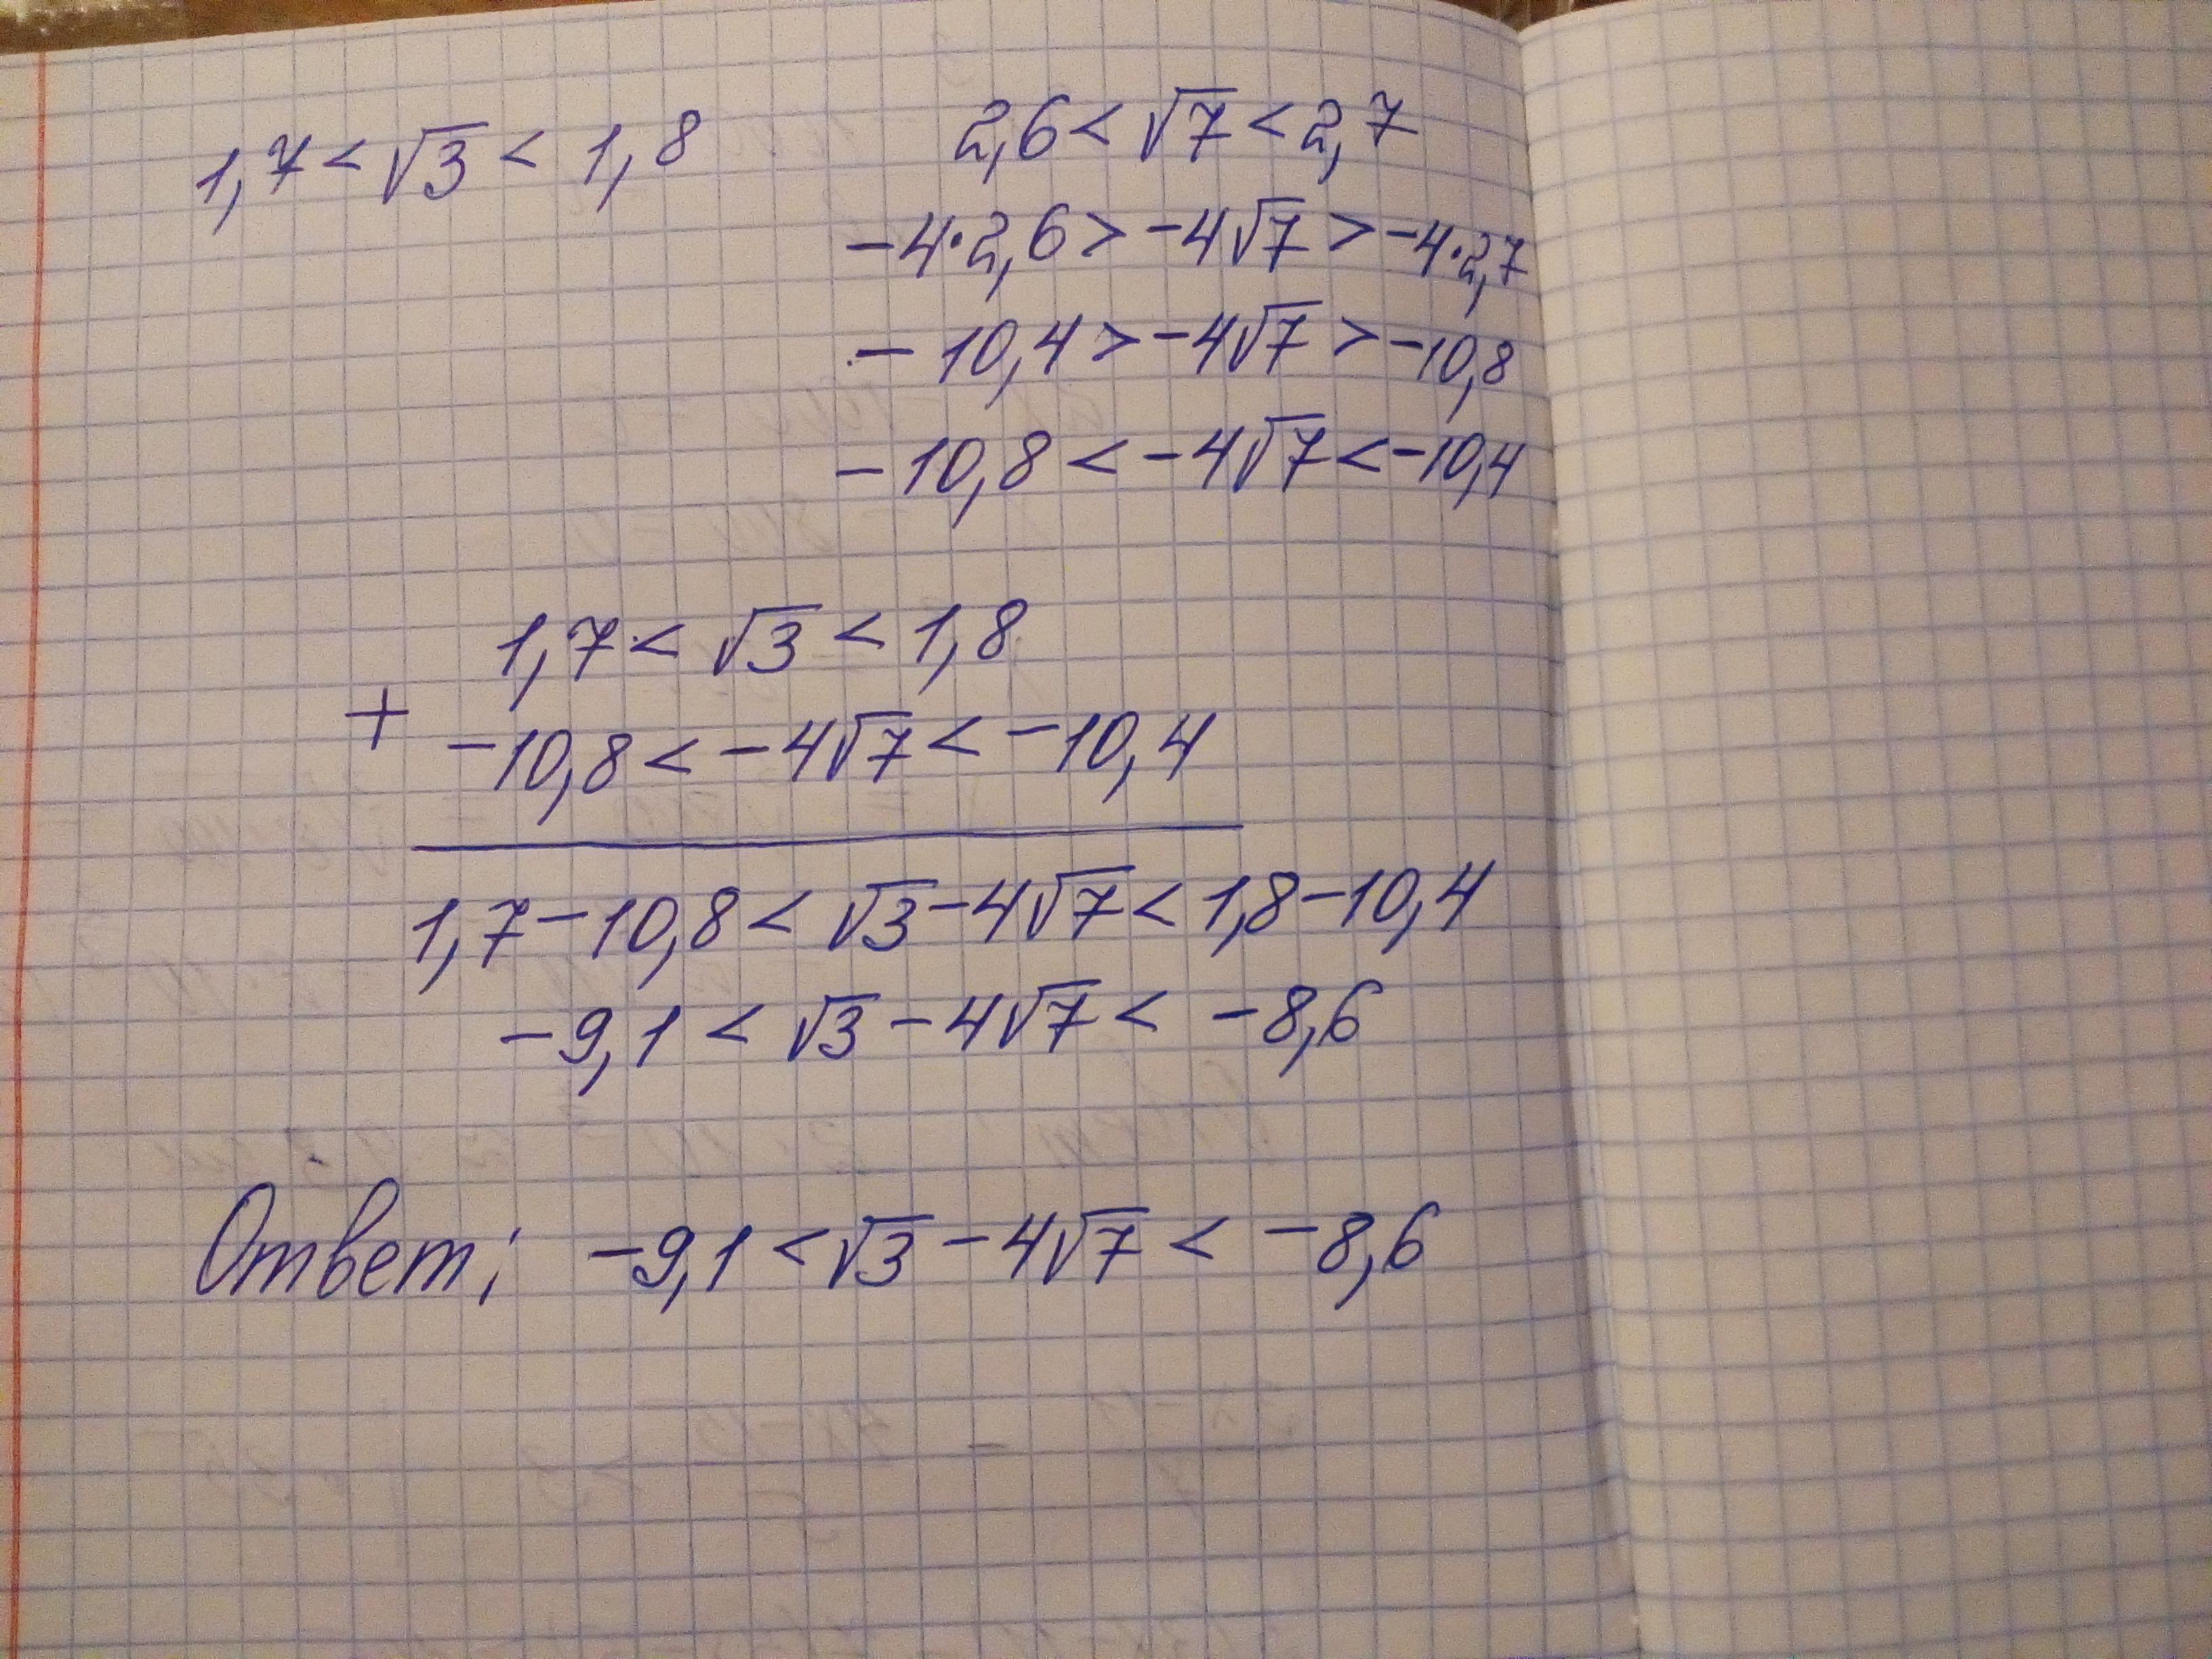 1,7 < √3 < 1,8
2,6 < √7 < 2,7
-4·2,6 > -4√7 > -4·2,7
-10,4 > -4√7 > -10,8
-10,8 < -4√7 < -10,4
1,7 < √3 < 1,8
+
-10,8 < -4√7 < -10,4
1,7-10,8 < √3-4√7 < 1,8-10,4
-9,1 < √3-4√7 < -8,6
Ответ: -9,1 < √3-4√7 < -8,6